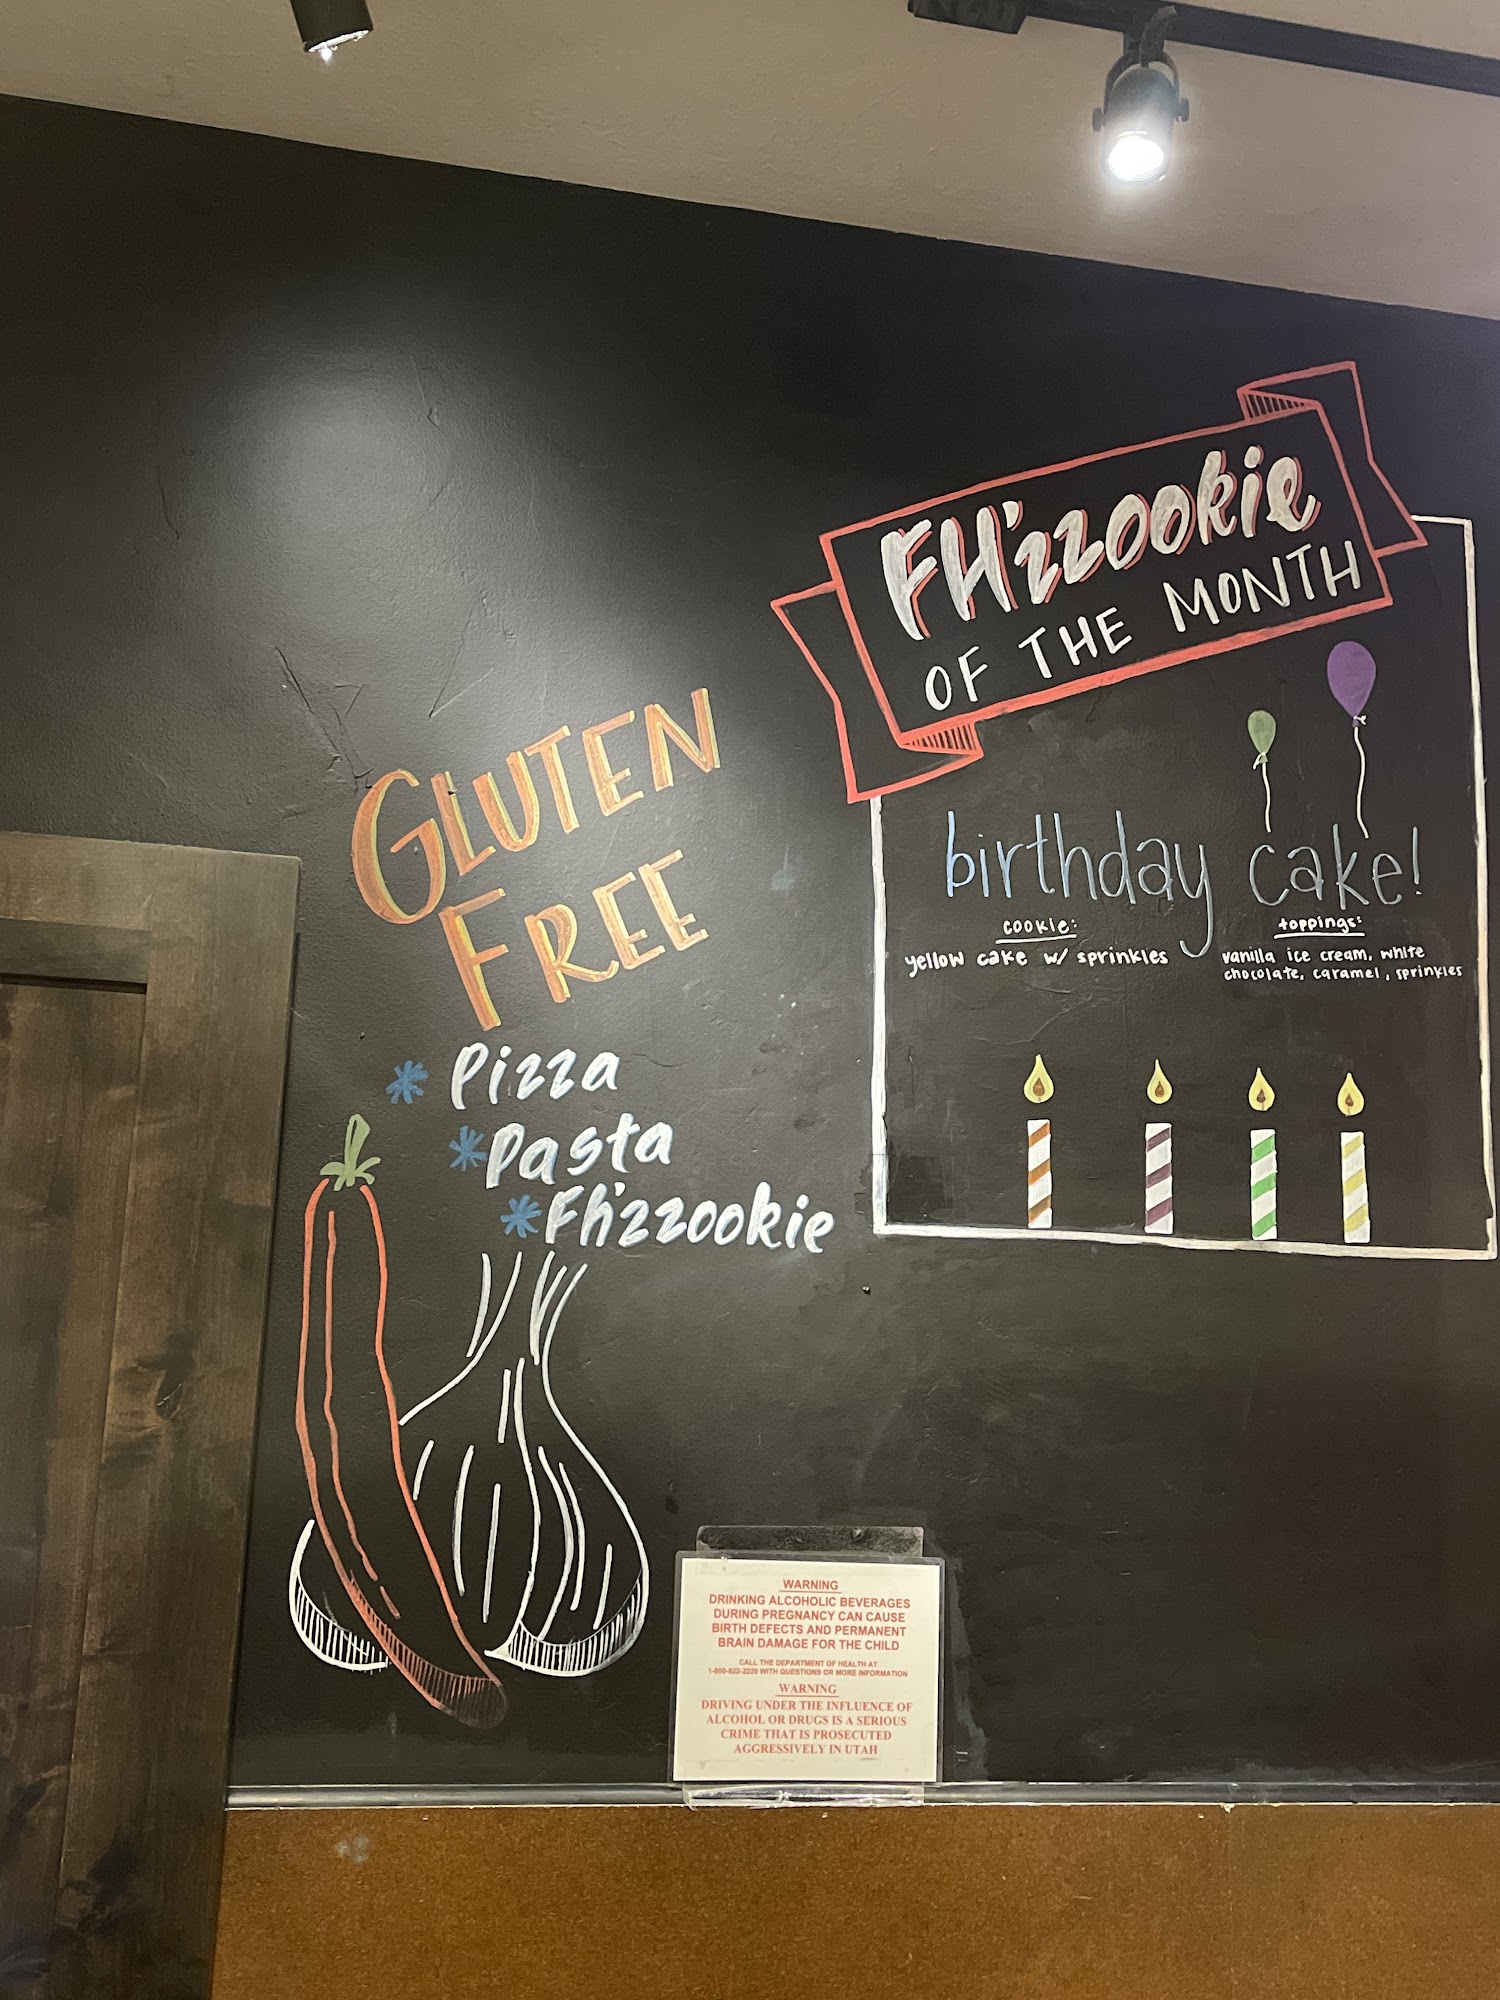 GLUTEN
FREE
* Pizza
* Pasta
* Fh'zzookie
FH'zzookie
OF THE MONTH
birthday cake!
cookie:
yellow cake w/ sprinkles
toppings:
vanilla ice cream, white
chocolate, caramel, sprinkles
WARNING
DRINKING ALCOHOLIC BEVERAGES
DURING PREGNANCY CAN CAUSE
BIRTH DEFECTS AND PERMANENT
BRAIN DAMAGE FOR THE CHILD
CALL THE DEPARTMENT OF HEALTH AT
1-800-822-2229 WITH QUESTIONS OR MORE INFORMATION
WARNING
DRIVING UNDER THE INFLUENCE OF
ALCOHOL OR DRUGS IS A SERIOUS
CRIME THAT IS PROSECUTED
AGGRESSIVELY IN UTAH